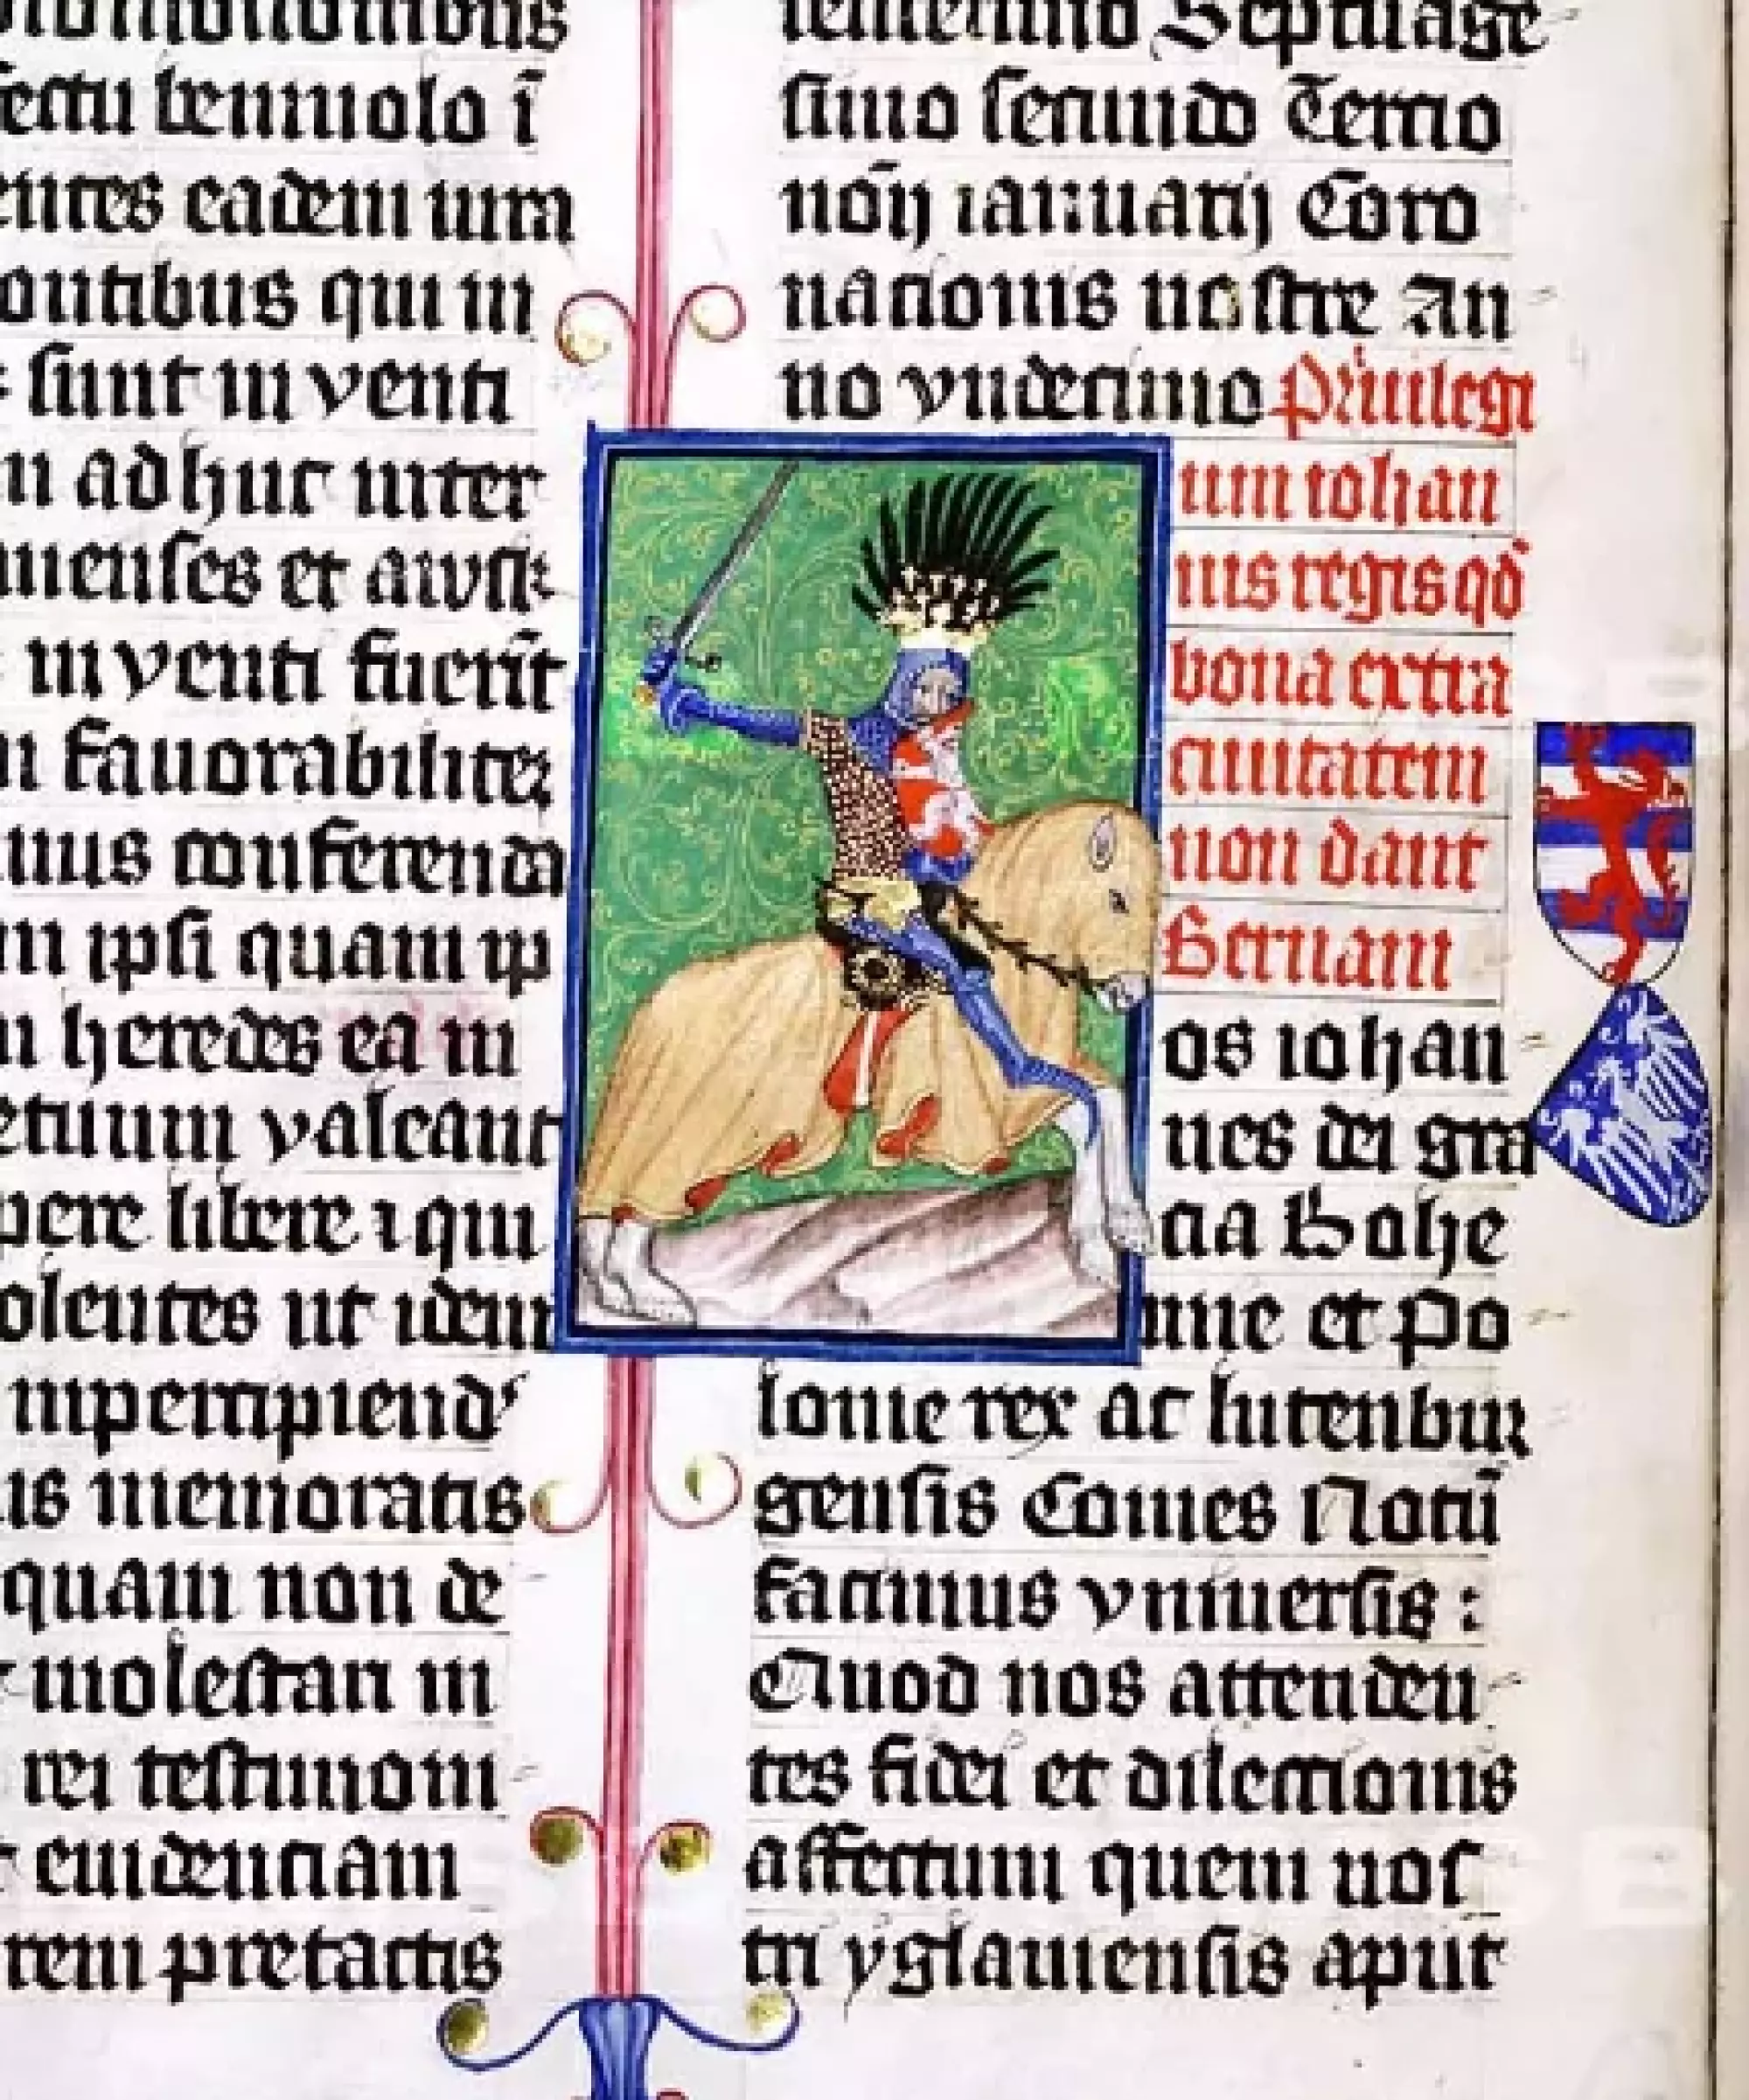 fectu beniuolo ī
entes eadem iura
ontibus qui in
sunt in venti
n adhuc inter
uienses et
in venti fuerīt
fauorabilit
mus conferenda
in ipsi quam ip
heredes ea in
valeant
libere ⁊ qui
olentes ut idem
inpercipiend
is memoratis
quam non de
molestari in
rei testimoni
euidenciam
rem pretactis
septuage
simo secundo Tercio
noīj ianuarij Coro
nacionis nostre An
no vndecimo Priuilegi
um iohan
nis regis qd̄
bona extra
ciuitatem
non dant
Bernam
os iohan
nes dei gra
cia Bohe
mie et Po
lonie rex ac lutenbur
gensis Comes Notū
facimus vniuersis :
Quod nos attenden
tes fidei et dileccionis
affectum quem nos
tri yglauiensis aput